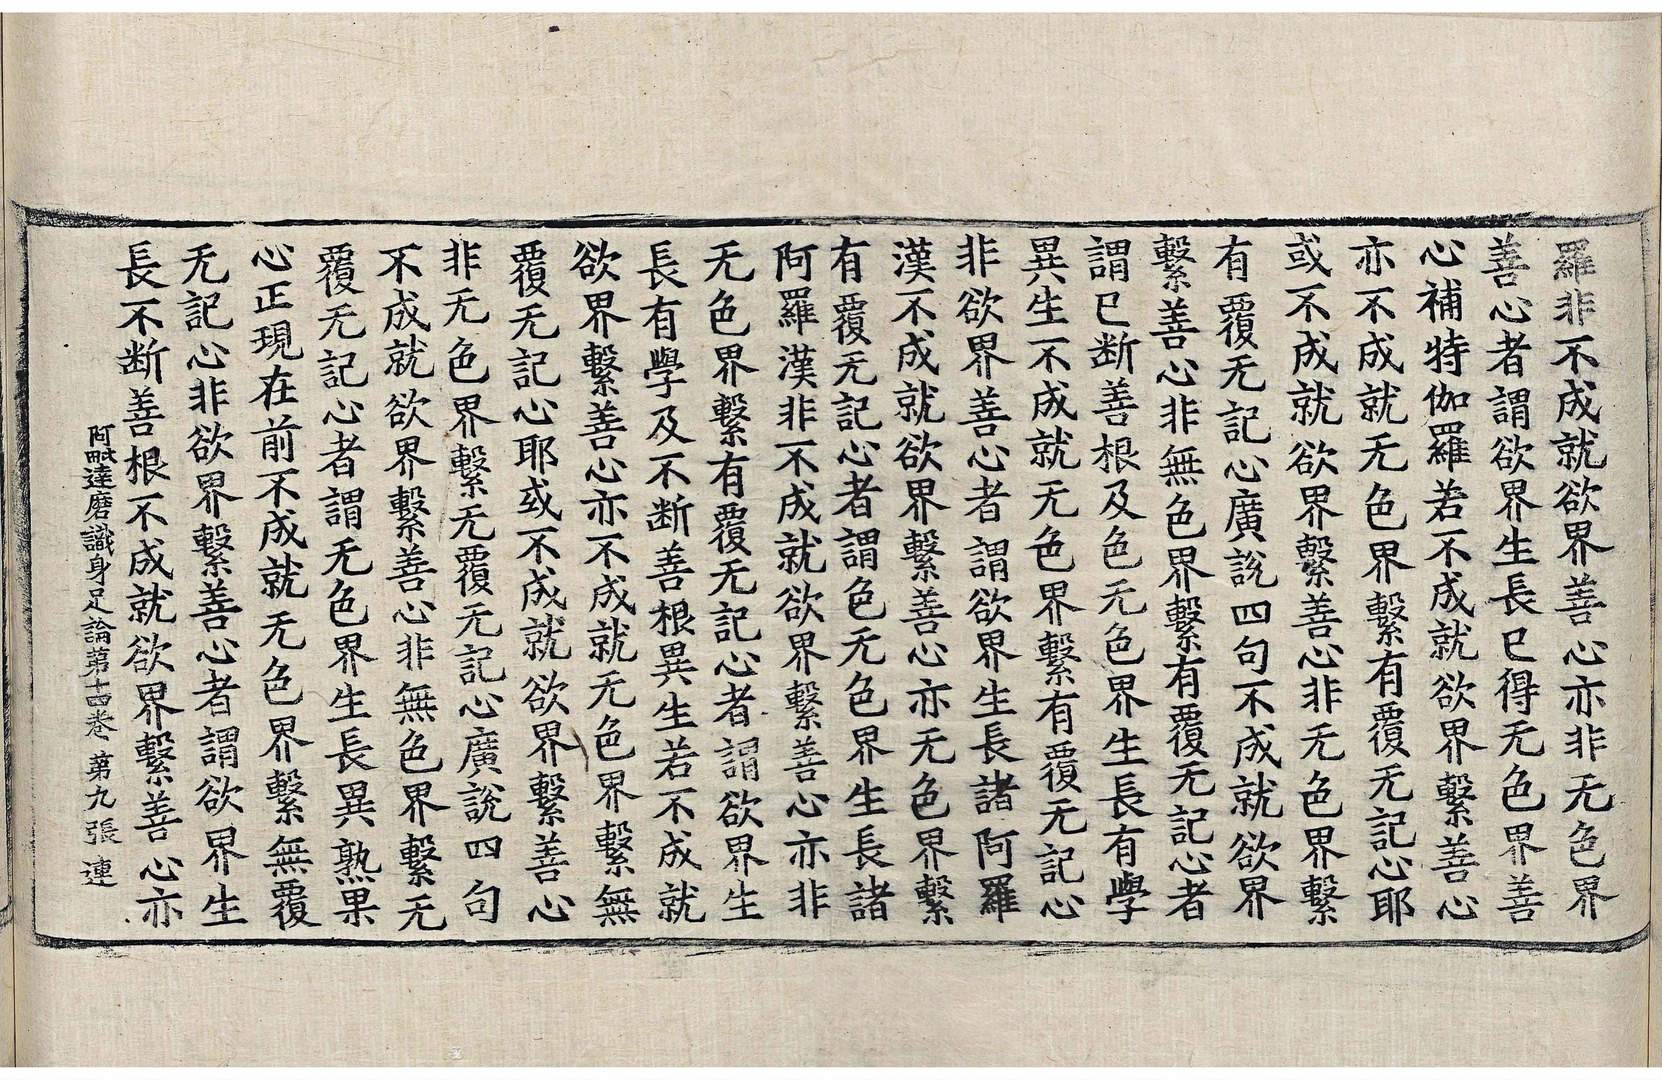 羅非不成就欲界善心亦非无色界
善心者謂欲界生長已得无色界善
心補特伽羅若不成就欲界繫善心
亦不成就无色界繫有覆无記心耶
或不成就欲界繫善心非无色界繫
有覆无記心廣說四句不成就欲界
繫善心非無色界繫有覆无記心者
謂已断善根及色无色界生長有學
異生不成就无色界繫有覆无記心
非欲界善心者謂欲界生長諸阿羅
漢不成就欲界繫善心亦无色界繫
有覆无記心者謂色无色界生長諸
阿羅漢非不成就欲界繫善心亦非
无色界繫有覆无記心者謂欲界生
長有學及不断善根異生若不成就
欲界繫善心亦不成就无色界繫無
覆无記心耶或不成就欲界繫善心
非无色界繫无覆无記心廣說四句
不成就欲界繫善心非無色界繫无
覆无記心者謂无色界生長異熟果
心正現在前不成就无色界繫無覆
无記心非欲界繫善心者謂欲界生
長不断善根不成就欲界繫善心亦
阿毗達磨識身足論第十四卷 第九張 連